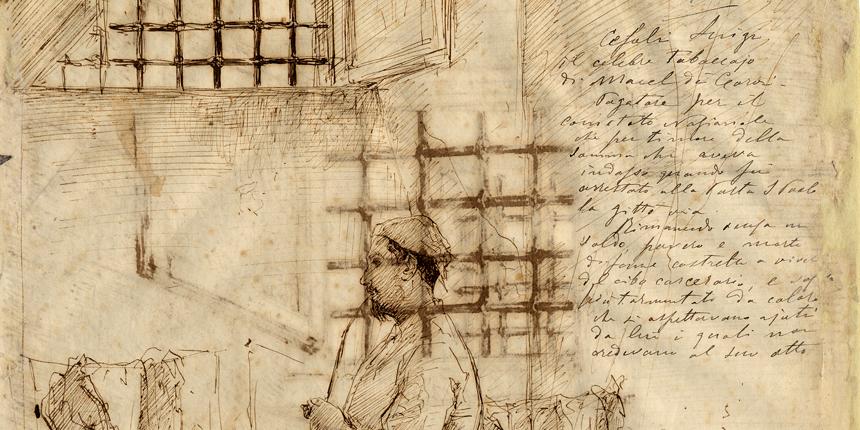 Cefali Luigi,
il celebre Tabaccajo
di Macel de Corvi -
Pagatore per il
comitato nazionale
che per timore della
somma che aveva
indosso quando fu
arrestato alla Porta S Paolo
la gittò via.
Rimanendo senza un
soldo, povero e
di fame costretto a vive
di cibo carcerario, e
tarmentato da coloro
che si aspettavano ajuti
da lui i quali non
credevano al suo atto